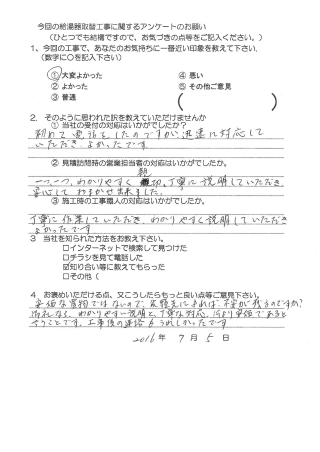 今回の給湯器取替工事に関するアンケートのお願い
(ひとつでも結構ですので、お気づきの点等をご記入ください。)
1、今回の工事で、あなたのお気持ちに一番近い印象を教えて下さい。
(数字に○を記入下さい)
① 大変よかった
④ 悪い
② よかった
⑤ その他ご意見
③ 普通
2. そのように思われた訳を教えていただけませんか
① 当社の受付の対応はいかがでしたか?
初めて電話をしたのですが、迅速に対応して
いただき、よかったです
② 見積訪問時の営業担当者の対応はいかがでしたか。
一つ一つ、わかりやすく 親切、丁寧に説明していただき
安心して おまかせ出来ました。
③ 施工時の工事職人の対応はいかがでしたか。
丁寧に作業していただき、わかりやすく説明していただき
よかったです
3 当社を知られた方法をお教え下さい。
□インターネットで検索して見つけた
□チラシを見て電話した
☑知り合い等に教えてもらった
□その他(
4 お褒めいただける点、又こうしたらもっと良い点等ご意見下さい。
安価な買物ではないので、
わかりやすい説明と、丁寧な対応、何より安価であると
いうことです。工事後の連絡もうれしかったです
2016年 7月 5日